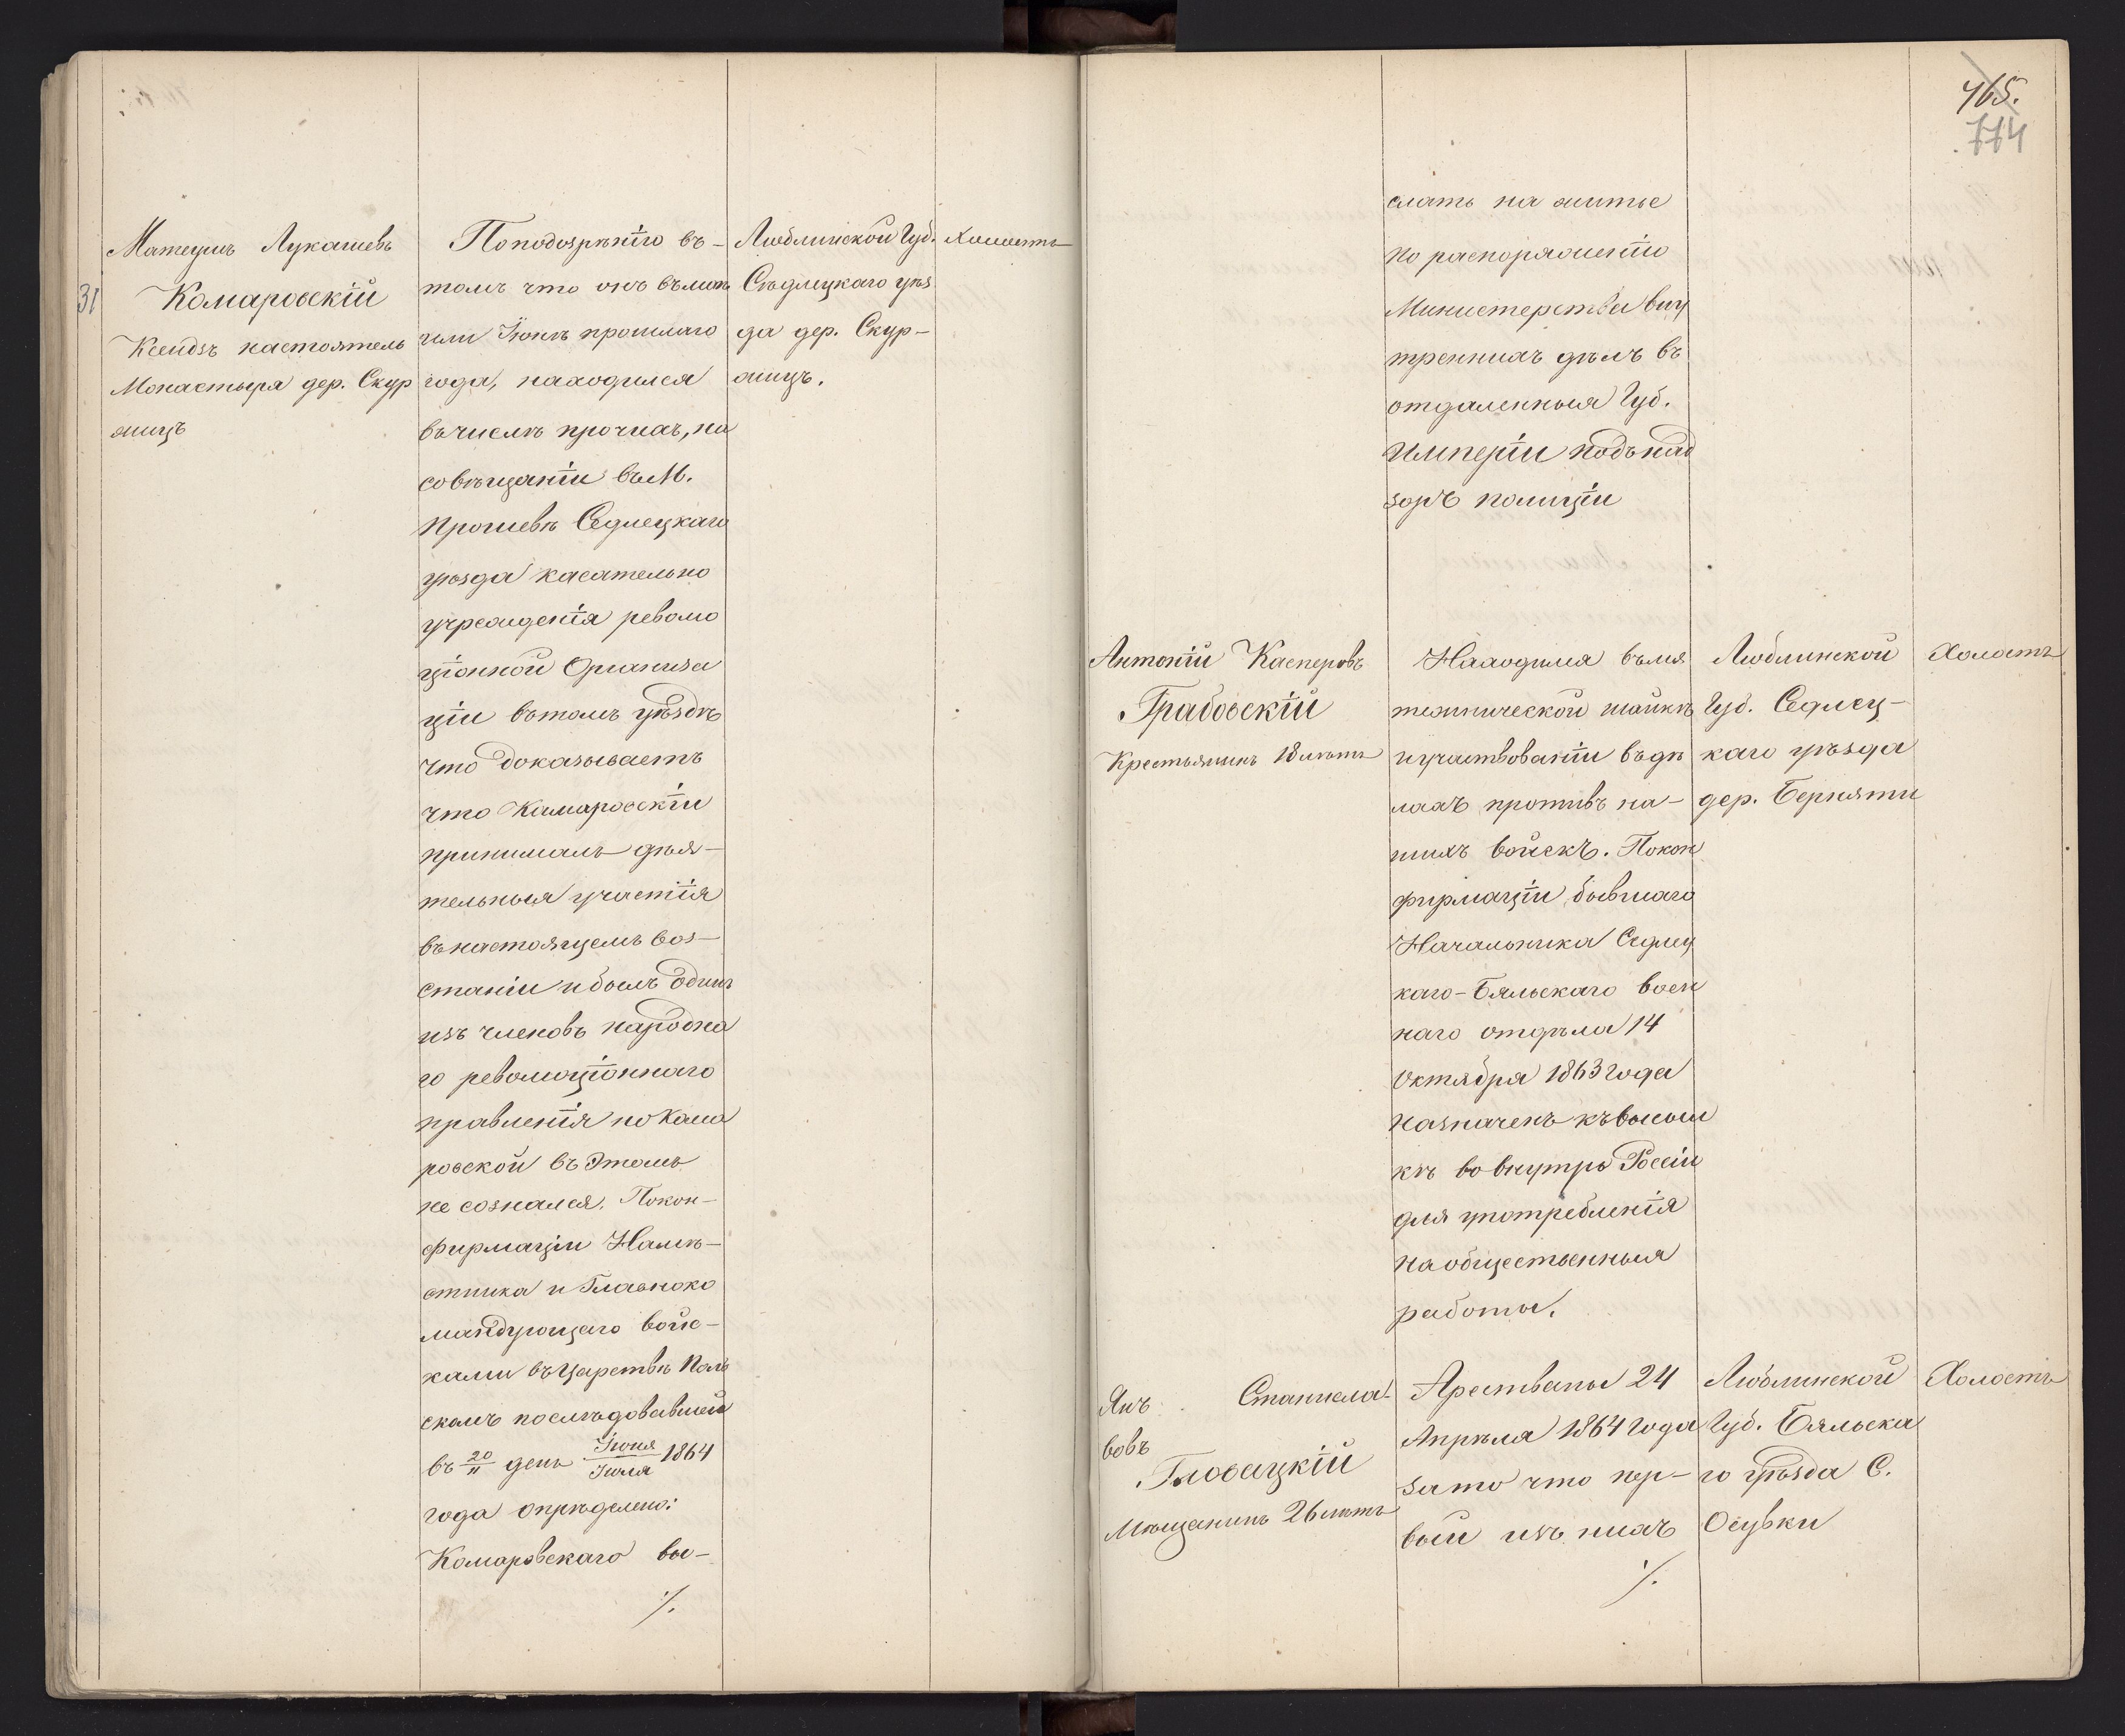 31
Матеушъ Лукашевъ
Комаровскій
Ксендзъ настоятель
Монастыря дер. Скур
жицъ
Поподозрѣнію въ-
томъ что онъ въмаѣ
или Іюнѣ прошлаго
года, находился
вчислѣ прочихъ, на
совѣщаніи въ М.
Прошевѣ Седлецкаго
уѣзда касательно
учрежденія револю
ціонной Организа
ціи втомъ уѣздѣ
что доказываетъ
что Камаровскіи
принималъ дѣя-
тельныя участія
въ настоящемъ воз-
станіи и былъ одинъ
изъ членовъ народна
го революціоннаго
правленія но Кама
ровской въ Этомъ
не сознался. Покон-
фирмаціи Намѣ-
стника и Главноко
мандующаго войс-
ками въ Царствѣ Поль
скомъ послѣдовавшей
въ 20/11 день Іюня/Іюля 1864
года опрѣделено:
Комаровскаго вы-
./.
Люблинской Губ.
Сѣдлецкаго уѣз
да дер. Скур-
жицъ.
Холостъ
465.
774
слать на житье
по распоряженію
Министерства вну
треннихъ дѣлъ въ
отдаленныя Губ.
Имперіи подъ над
зоръ полиціи
Антоній Касперовъ
Грабовскій
Крестьянинъ 18 лѣтъ
Находился въ мя
тежнической шайкѣ
и участвованіи въ дѣ
лахъ противъ на-
шихъ войскъ. Покон
фирмаціи бывшаго
Начальника Седлец
каго-Бяльскаго воен
наго отдѣла 14
Октября 1863 года
назначенъ къ высыл
кѣ во внутрь Россіи
для употребленія
на общественныя
работы.
Люблинской
Губ. Седлец-
каго уѣзда
дер. Берняти
Холостъ
Янъ Станисла-
вовъ
Гловацкій
Мѣщанинъ 26 лѣтъ
Арествены 24
Апрѣля 1864 года
зато что пер-
вый изъ нихъ
./.
Люблинской
Губ. Бяльска
го уѣзда С.
Осувки
Холостъ